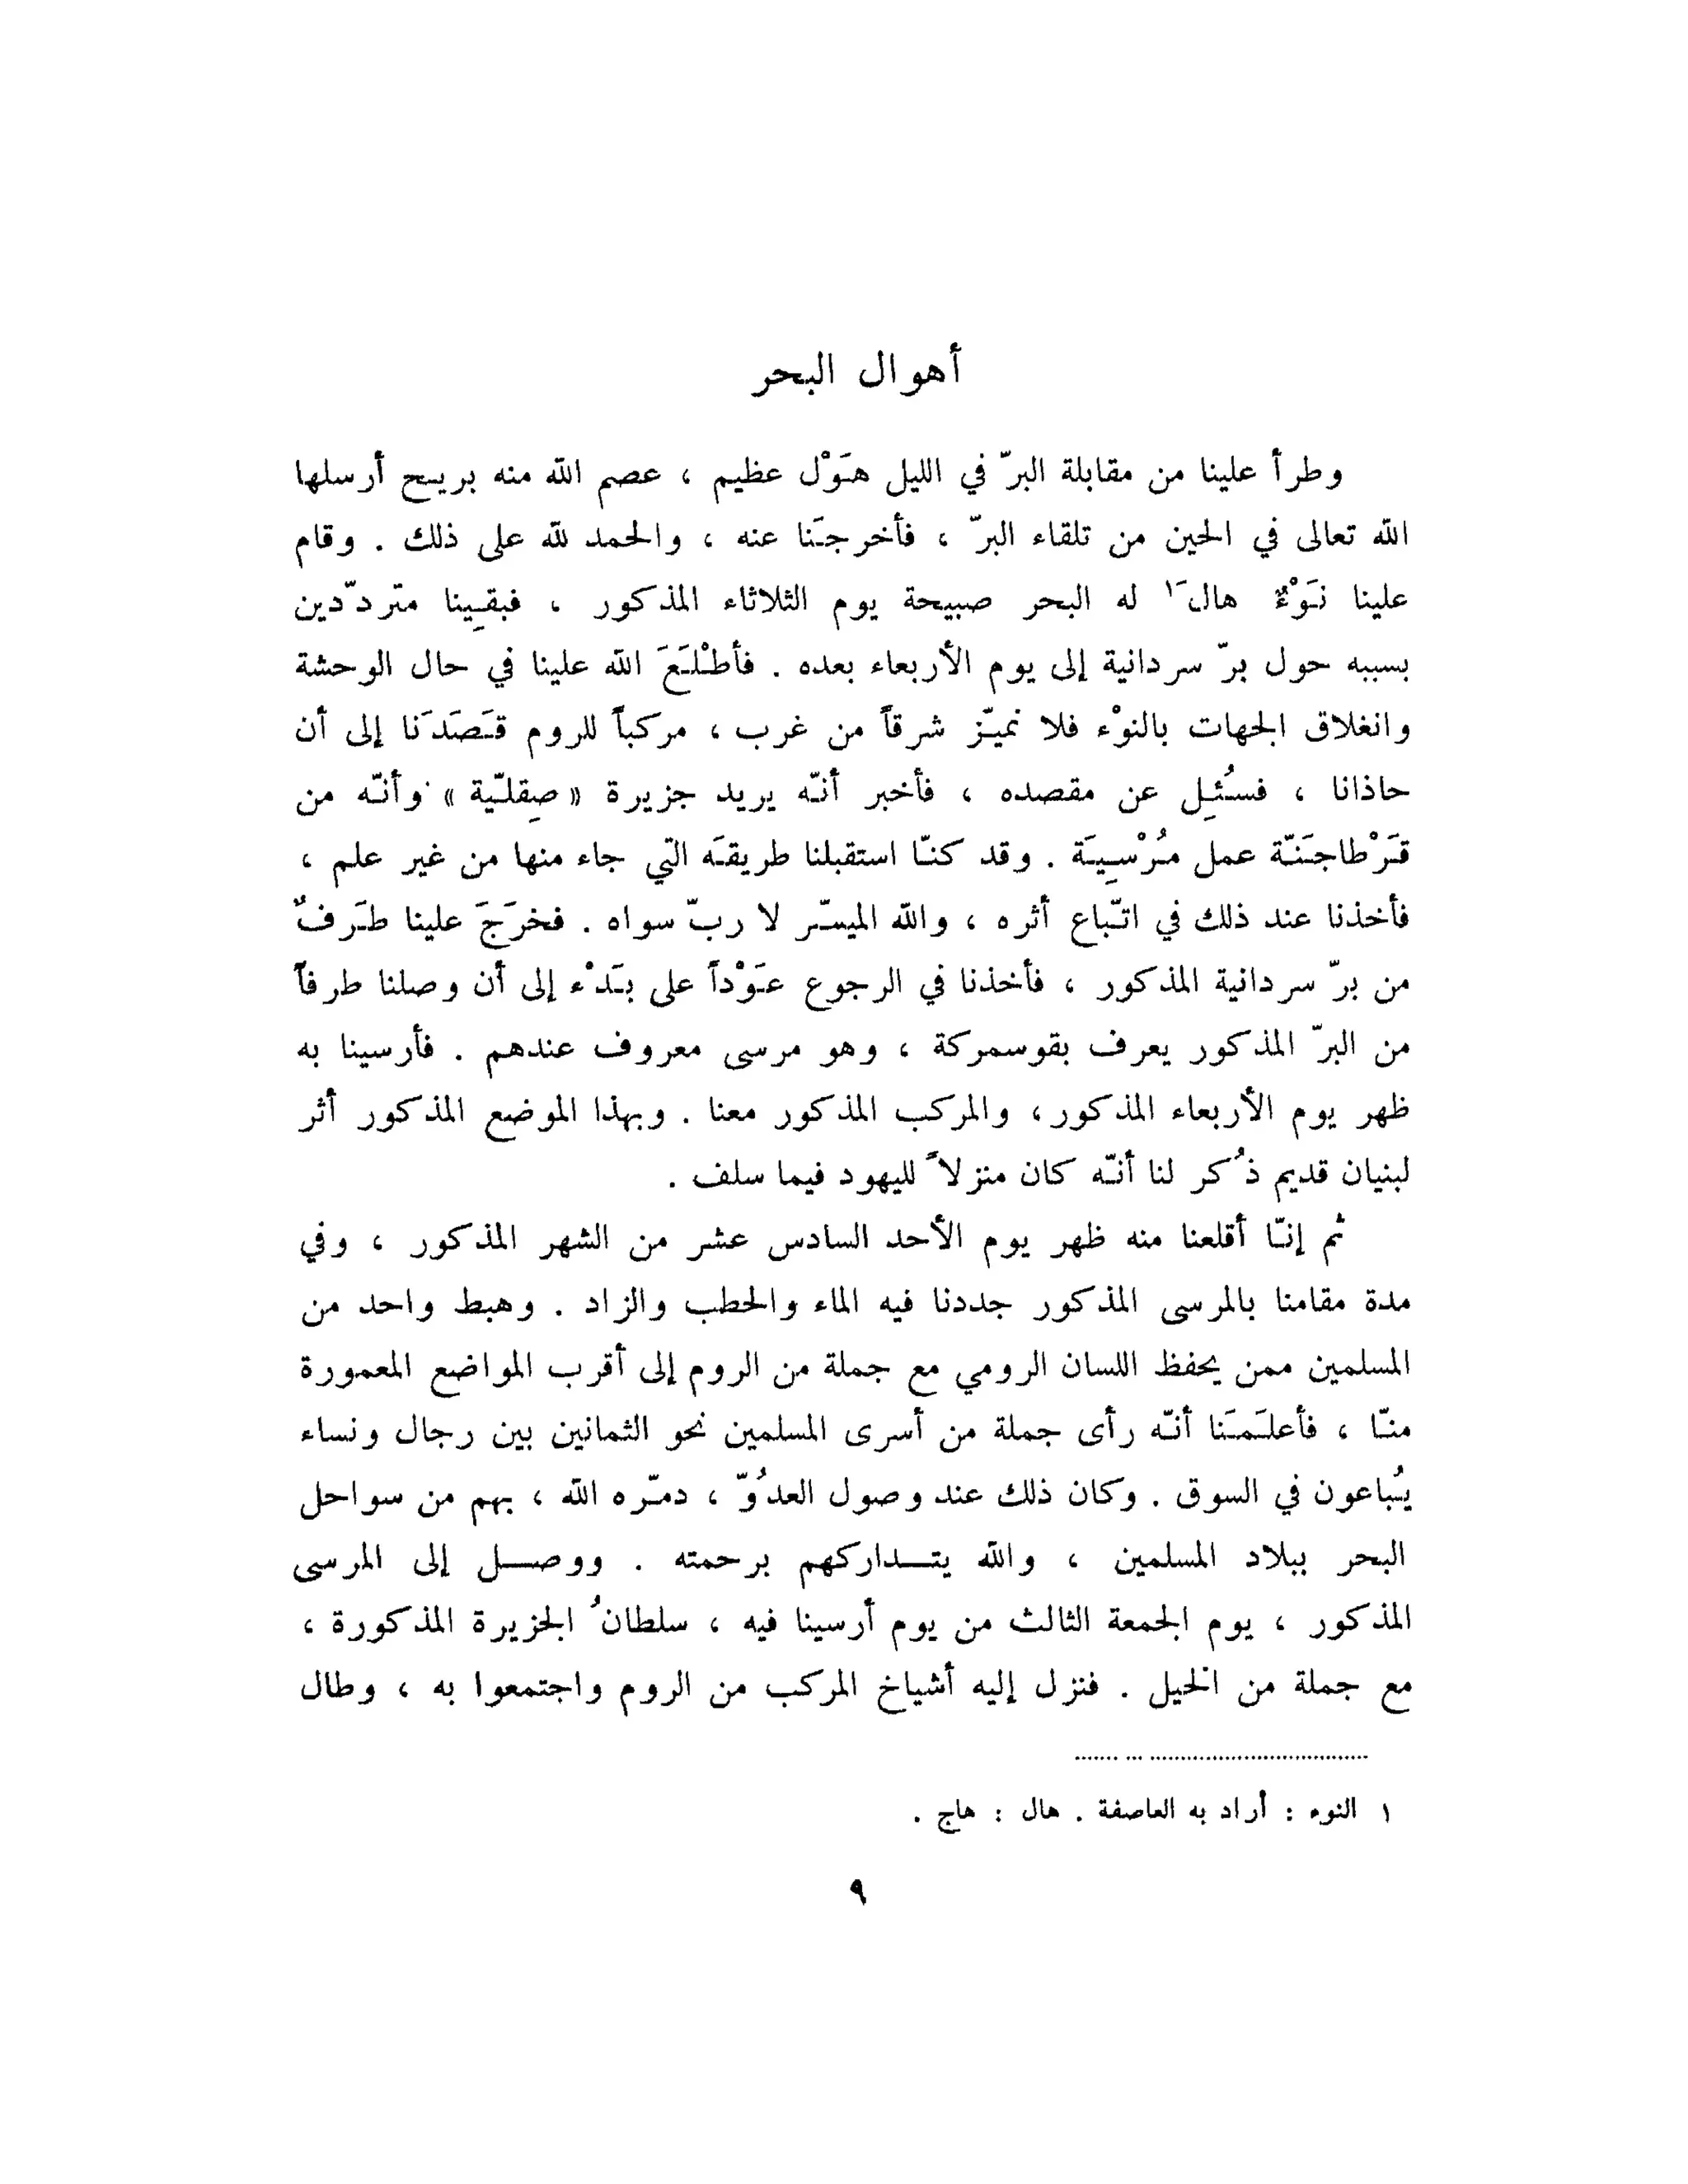 أهوال البحر
وطرأ علينا من مقابلة البرّ في الليل هَوْل عظيم ، عصم الله منه بريح أرسلها
الله تعالى في الحين من تلقاء البرّ ، فأخرجَنا عنه ، والحمد لله على ذلك . وقام
علينا نَوْءٌ هالَ١ له البحر صبيحة يوم الثلاثاء المذكور ، فبقِينا متردّدين
بسببه حول برّ سردانية إلى يوم الأربعاء بعده . فأطْلَعَ الله علينا في حال الوحشة
وانغلاق الجهات بالنوْء فلا نميّز شرقاً من غرب ، مركباً للروم قَصَدَنا إلى أن
حاذانا ، فسُئِل عن مقصده ، فأخبر أنّه يريد جزيرة « صِقلّيّة » وأنّه من
قَرْطاجَنّة عمل مُرْسِيَة . وقد كنّا استقبلنا طريقَه التي جاء منها من غير علم ،
فأخذنا عند ذلك في اتّباع أثره ، والله الميسّر لا ربّ سواه . فخرَجَ علينا طَرَفٌ
من برّ سردانية المذكور ، فأخذنا في الرجوع عَوْداً على بَدْء إلى أن وصلنا طرفاً
من البرّ المذكور يعرف بقوسمركة ، وهو مرسى معروف عندهم . فأرسينا به
ظهر يوم الأربعاء المذكور ، والمركب المذكور معنا . وبهذا الموضع المذكور أثر
لبنيان قديم ذُكر لنا أنّه كان منزلاً لليهود فيما سلف .
ثم إنّا أقلعنا منه ظهر يوم الأحد السادس عشر من الشهر المذكور ، وفي
مدة مقامنا بالمرسى المذكور جددنا فيه الماء والحطب والزاد . وهبط واحد من
المسلمين ممن يحفظ اللسان الرومي مع جملة من الروم إلى أقرب المواضع المعمورة
منّا ، فأعلَمَنا أنّه رأى جملة من أسرى المسلمين نحو الثمانين بين رجال ونساء
يُباعون في السوق . وكان ذلك عند وصول العدُوّ ، دمّره الله ، بهم من سواحل
البحر ببلاد المسلمين ، والله يتداركهم برحمته . ووصل إلى المرسى
المذكور ، يوم الجمعة الثالث من يوم أرسينا فيه ، سلطانُ الجزيرة المذكورة ،
مع جملة من الخيل . فنزل إليه أشياخ المركب من الروم واجتمعوا به ، وطال
١ النوء : أراد به العاصفة . هال : هاج .
٩